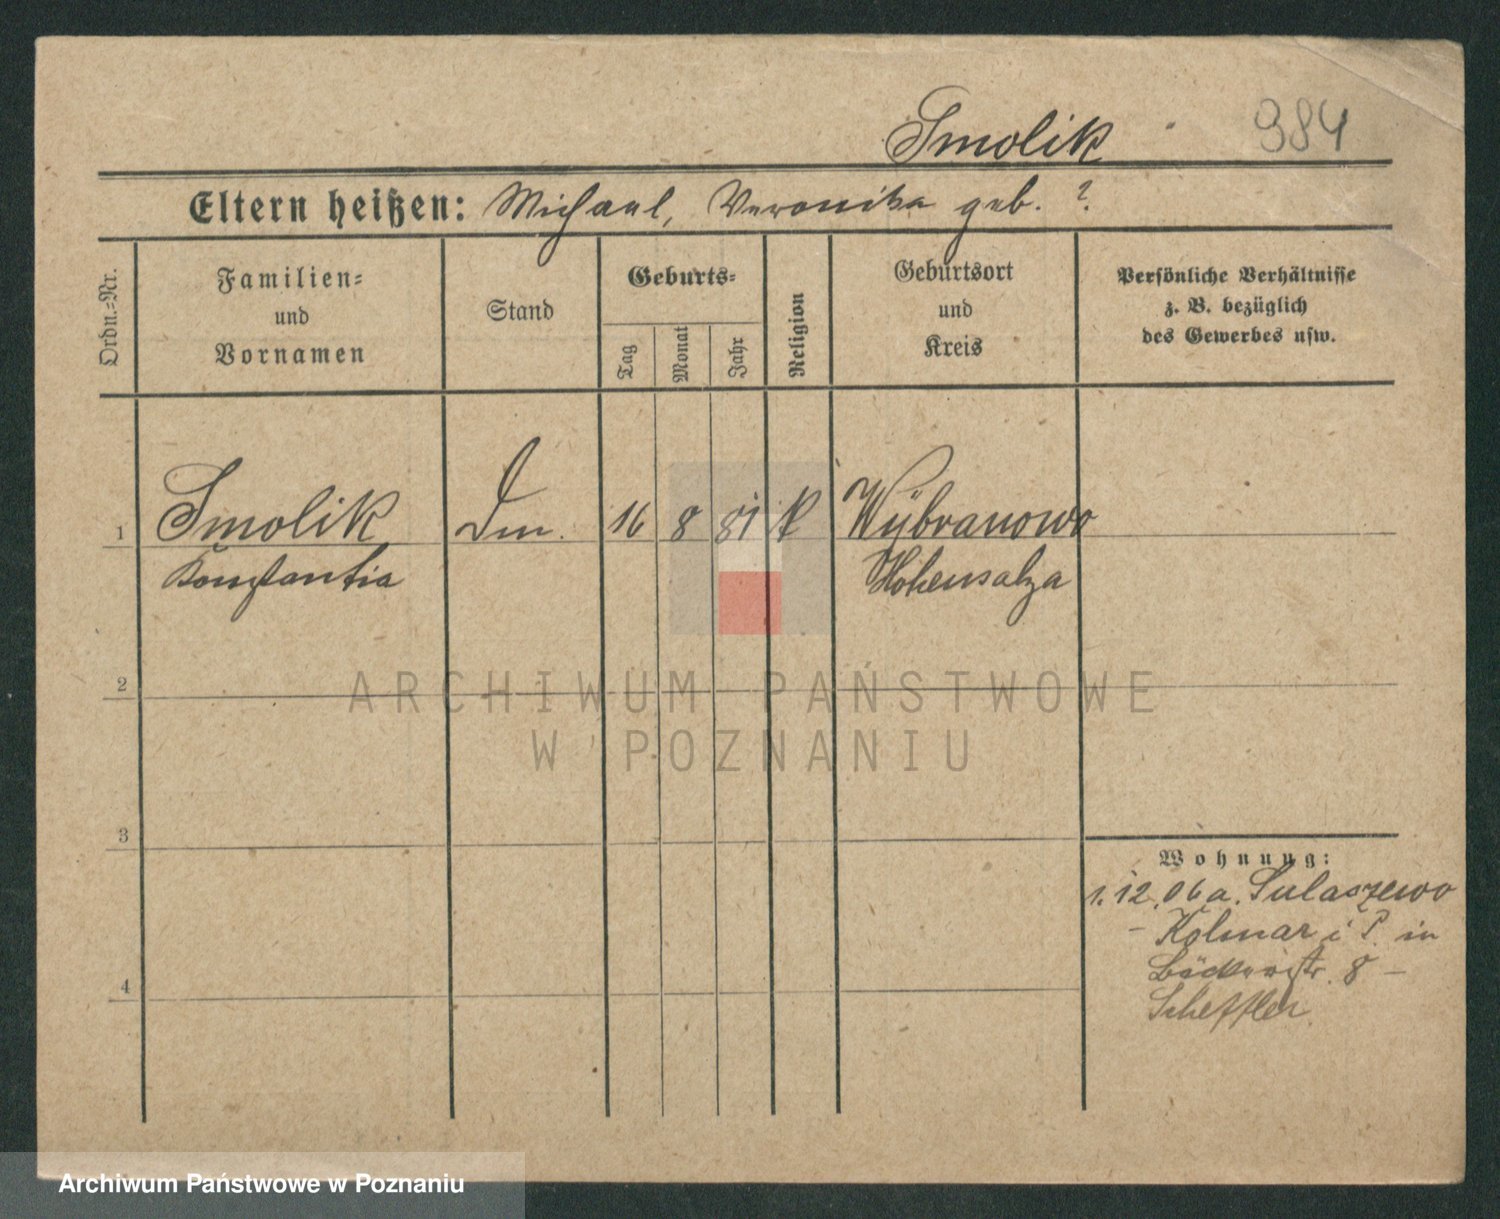 Smolik 984
Eltern heißen: Michael, Veronika geb. ?
Ordn.-Nr.
Familien-
und
Vornamen
Stand
Geburts-
Tag
Monat
Jahr
Religion
Geburtsort
und
Kreis
Persönliche Verhältnisse
z. B. bezüglich
des Gewerbes usw.
1 Smolik 16 8 81 k Wÿbranowo
Konstantia Hohensalza
2
3
4
Wohnung:
1.12.06 a. Sulaszewo
- Kolmar i P. in
Bäckerstr. 8 -
Scheffler
ARCHIWUM PAŃSTWOWE
W POZNANIU
Archiwum Państwowe w Poznaniu